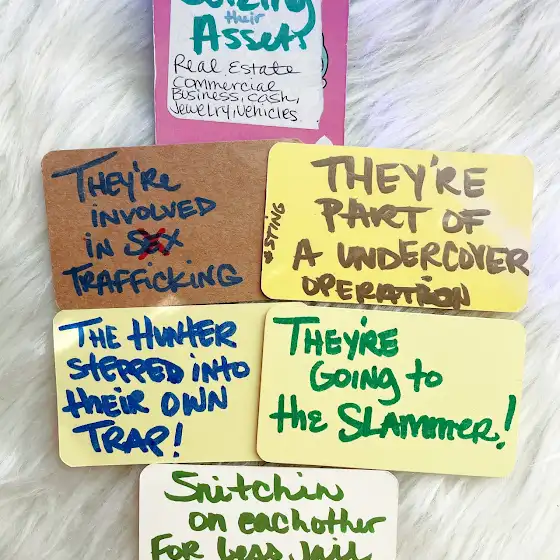 their
Assets
Real Estate
Commercial
Business, cash,
Jewelry, vehicles
THEY'RE
INVOLVED
IN SEX
TRAFFICKING
THEY'RE
PART OF
A UNDERCOVER
OPERATION
*STING
THE HUNTER
STEPPED INTO
their OWN
TRAP!
THEY'RE
GOING to
the SLAMMER!
Snitchin
on eachother
FOR less Jail